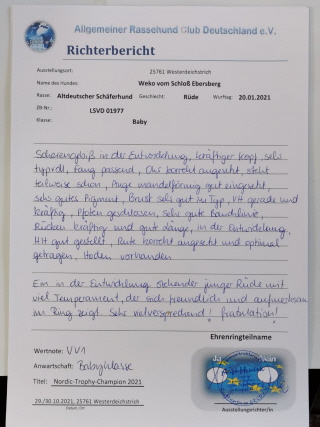 Allgemeiner Rassehund Club Deutschland e.V.
Richterbericht
Ausstellungsort: 25761 Westerdeichstrich
Name des Hundes: Weko vom Schloß Ebersberg
Rasse: Altdeutscher Schäferhund Geschlecht: Rüde Wurftag: 20.01.2021
ZB-Nr.: LSVD 01977
Klasse: Baby
Scherengebiß in der Entwicklung, kräftiger Kopf, sehr
typvoll, Fang passend, Ohr korrekt angesetzt, steht
teilweise schon, Auge mandelförmig gut eingesetzt,
sehr gutes Pigment, Brust sehr gut zu Typ, VH gerade und
kräftig, Pfoten geschlossen, sehr gute Bauchlinie,
Rücken kräftig und gute Länge, in der Entwicklung,
HH gut gestellt, Rute korrekt angesetzt und optimal
getragen, Hoden vorhanden
Ein in der Entwicklung stehender junger Rüde mit
viel Temperament, der sich freundlich und aufmerksam
im Ring zeigt. Sehr vielversprechend! Gratulation!
Ehrenringteilname
Wertnote: VV1
Anwartschaft: Babyklasse
Titel: Nordic-Trophy-Champion 2021
Ja
29./30.10.2021, 25761 Westerdeichstrich
Datum, Ort
Ausstellungsrichter/in